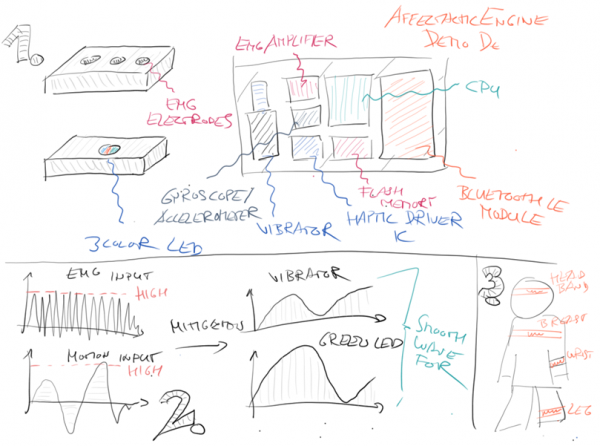 1.
EMG/AMPLIFIER
AFFECTACTIC ENGINE
DEMO DE
CPU
EMG
ELECTRODES
GYROSCOPE/
ACCELEROMETER
VIBRATOR
FLASH
MEMORY
HAPTIC DRIVER
IC
BLUETOOTH LE
MODULE
3COLOR LED
EMG INPUT
HIGH
MOTION INPUT
HIGH
2.
VIBRATOR
GREEN LED
SMOOTH
WAVE
FOR
3.
HEAD
BAND
BREAST
WRIST
LEG